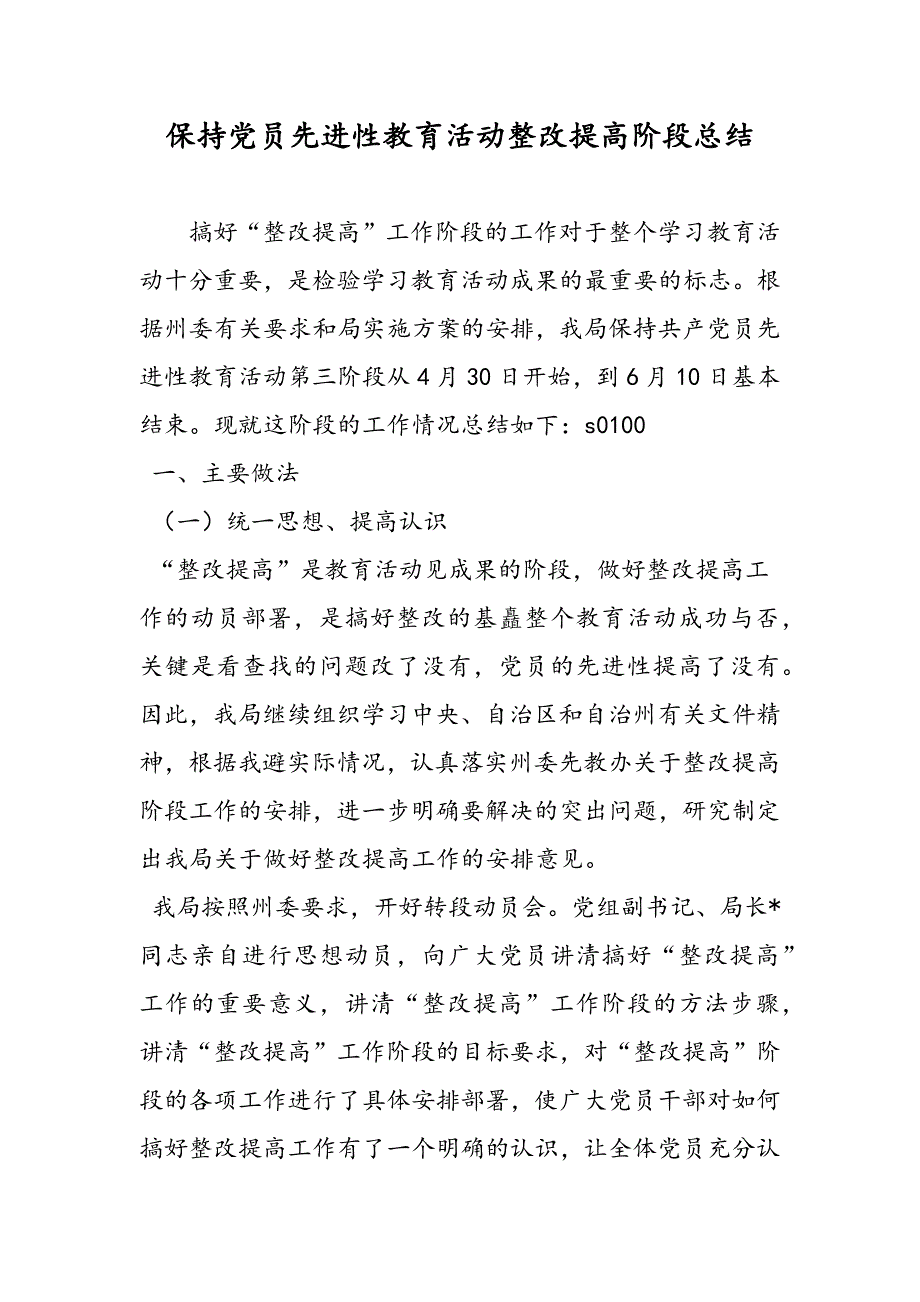 保持党员先进性教育活动整改提高阶段总结
搞好“整改提高”工作阶段的工作对于整个学习教育活
动十分重要，是检验学习教育活动成果的最重要的标志。根
据州委有关要求和局实施方案的安排，我局保持共产党员先
进性教育活动第三阶段从4月30日开始，到6月10日基本
结束。现就这阶段的工作情况总结如下：s0100
一、主要做法
（一）统一思想、提高认识
“整改提高”是教育活动见成果的阶段，做好整改提高工
作的动员部署，是搞好整改的基矗整个教育活动成功与否，
关键是看查找的问题改了没有，党员的先进性提高了没有。
因此，我局继续组织学习中央、自治区和自治州有关文件精
神，根据我避实际情况，认真落实州委先教办关于整改提高
阶段工作的安排，进一步明确要解决的突出问题，研究制定
出我局关于做好整改提高工作的安排意见。
我局按照州委要求，开好转段动员会。党组副书记、局长*
同志亲自进行思想动员，向广大党员讲清搞好“整改提高”
工作的重要意义，讲清“整改提高”工作阶段的方法步骤，
讲清“整改提高”工作阶段的目标要求，对“整改提高”阶
段的各项工作进行了具体安排部署，使广大党员干部对如何
搞好整改提高工作有了一个明确的认识，让全体党员充分认